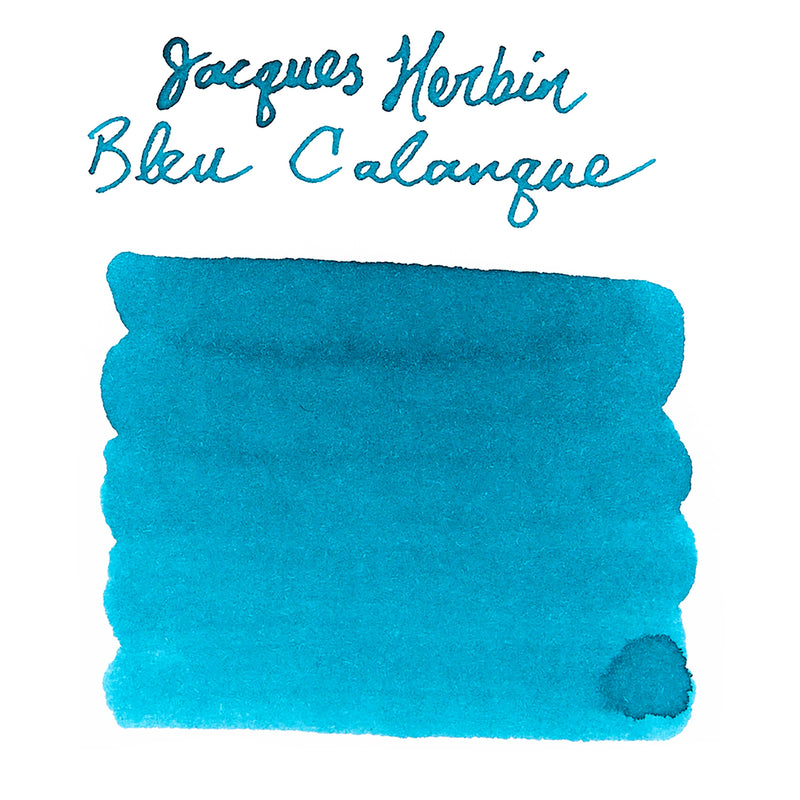 Jacques Herbin
Bleu Calanque